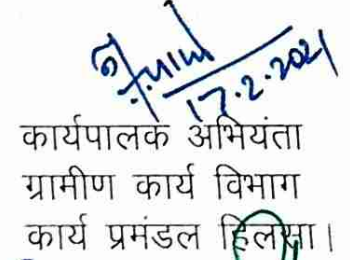 17.2.2021
कार्यपालक अभियंता
ग्रामीण कार्य विभाग
कार्य प्रमंडल हिलसा।